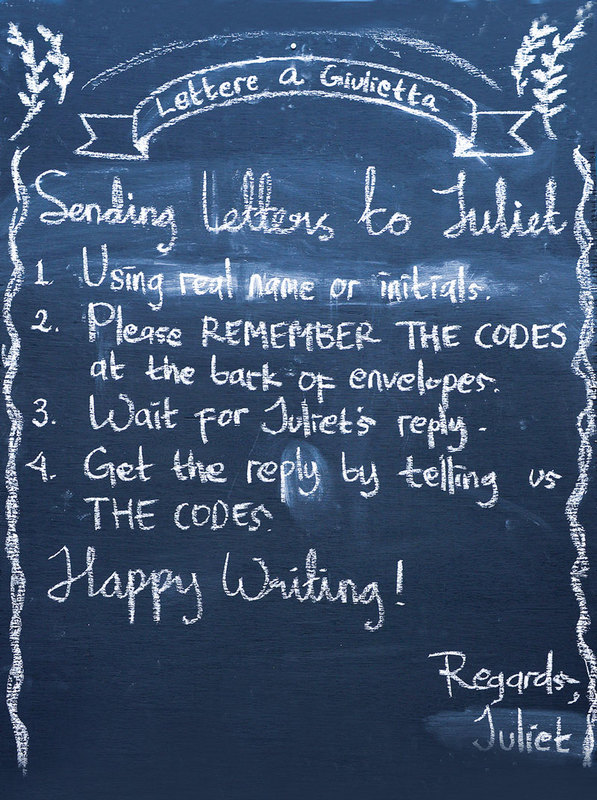 Lettere a Giulietta
Sending Letters to Juliet
1 Using real name or initials.
2. Please REMEMBER THE CODES
at the back of envelopes.
3. Wait for Juliet's reply.
4. Get the reply by telling us
THE CODES.
Happy Writing!
Regards,
Juliet